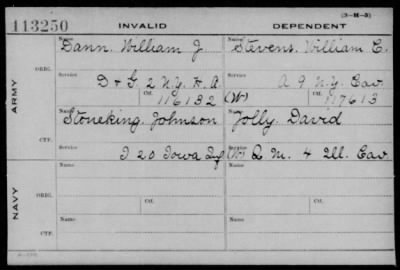 113250 INVALID DEPENDENT (3-M-3)
Name Name
Dann, William J. Stevens, William C.
ARMY
ORIG.
Service Service
D & G 2 N.Y. H.A. A 9 N.Y. Cav.
Ctf. 116132 (W) Ctf. 117613
Name Name
Stoneking, Johnson Jolly, David
CTF.
Service Service
I 20 Iowa Inf (W) Q.M. 4 Ill. Cav.
NAVY
ORIG.
Name Name
Ctf. Ctf.
Name Name
CTF.